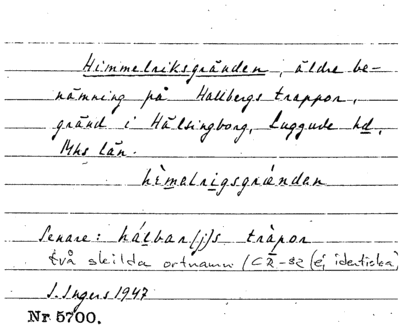 Himmelriksgränden, äldre be-
nämning på Hallbergs trappor,
gränd i Hälsingborg, Luggude hd,
Mhs län.
hèmalrigsgrándan
Senare: hálbar(j)s tràpor
två skilda ortnamn (ej identiska)
S. Ingers 1947
Nr 5700.